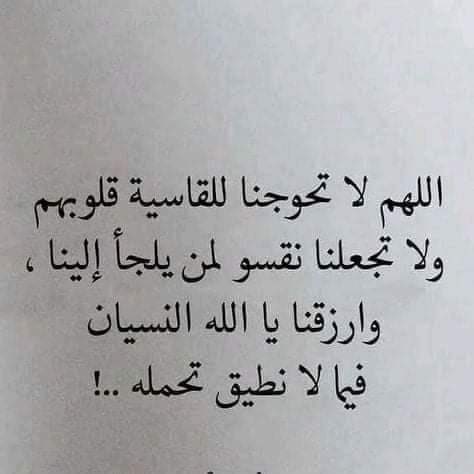 اللهم لا تحوجنا للقاسية قلوبهم
ولا تجعلنا نقسو لمن يلجأ إلينا ،
وارزقنا يا الله النسيان
فيما لا نطيق تحمله ..!